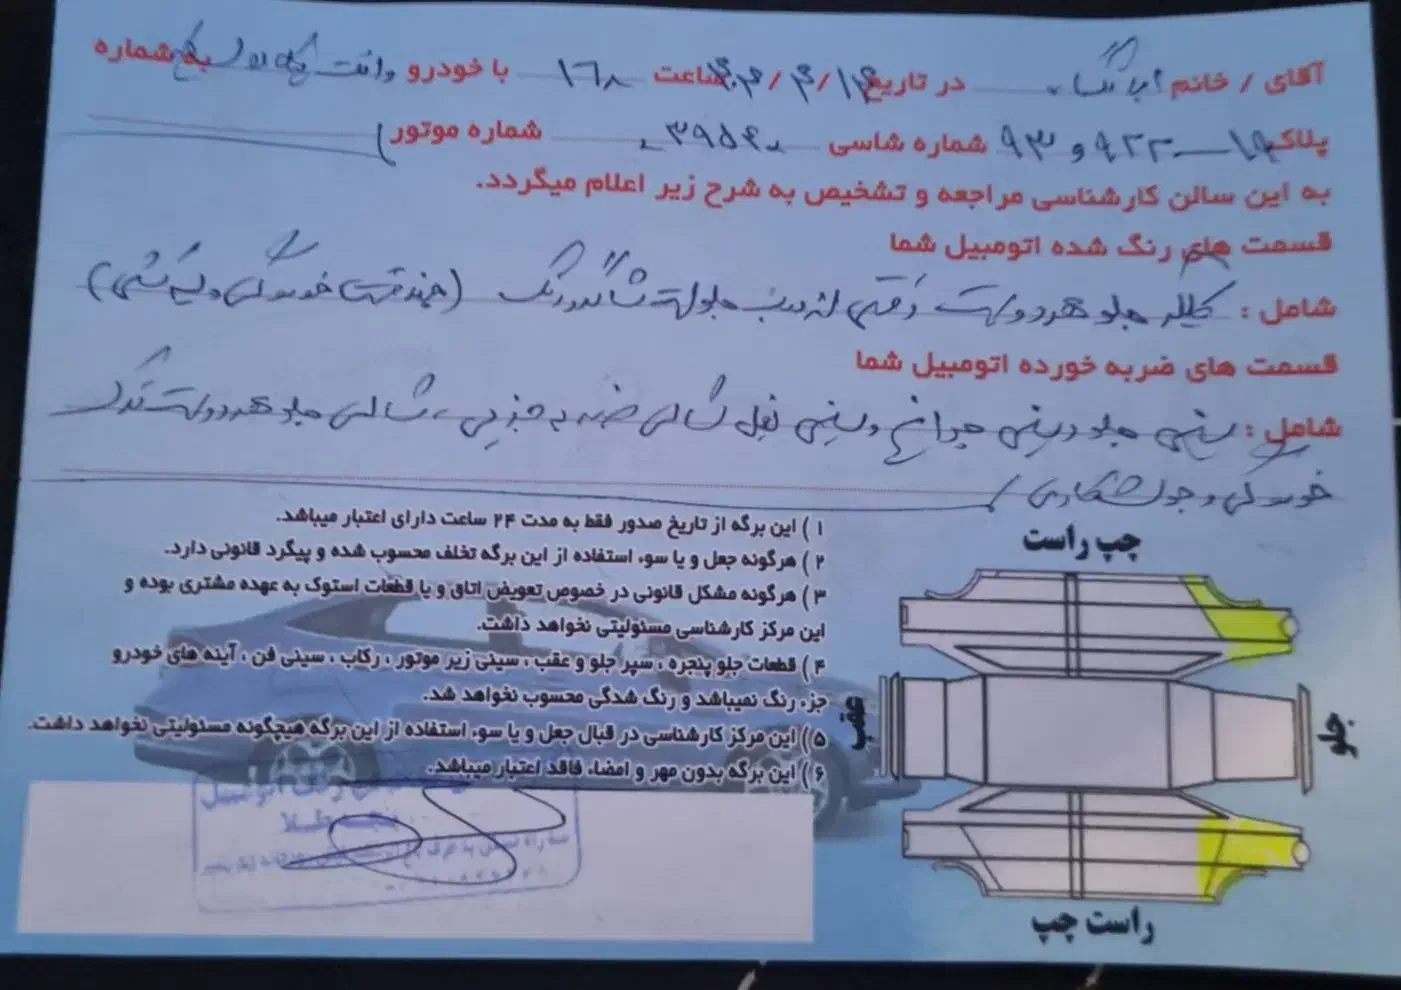 آقای / خانم در تاریخ ۱۴ / ۴ / ۴۰۴ ساعت ۱۶۸ با خودرو وانت به شماره
پلاک ۱۹ ۹۲۲ و ۹۳ شماره شاسی ۳۹۵۴۰ شماره موتور
به این سالن کارشناسی مراجعه و تشخیص به شرح زیر اعلام میگردد.
قسمت های رنگ شده اتومبیل شما
شامل : گلگیر جلو هر دو سمت درب جلو سمت شاگرد رنگ (چند قسمت خوردگی و لیسه گیری)
قسمت های ضربه خورده اتومبیل شما
شامل : سینی جلو و سینی چراغ و سینی بغل شاسی ضربه جزیی، شاسی جلو هر دو سمت
خوردگی و جوشکاری
۱ ) این برگه از تاریخ صدور فقط به مدت ۲۴ ساعت دارای اعتبار میباشد.
۲ ) هرگونه جعل و یا سوء استفاده از این برگه تخلف محسوب شده و پیگرد قانونی دارد.
۳ ) هرگونه مشکل قانونی در خصوص تعویض اتاق و یا قطعات استوک به عهده مشتری بوده و
این مرکز کارشناسی مسئولیتی نخواهد داشت.
۴ ) قطعات جلو پنجره ، سپر جلو و عقب ، سینی زیر موتور ، رکاب ، سینی فن ، آینه های خودرو
جزء رنگ نمیباشد و رنگ شدگی محسوب نخواهد شد.
۵ ) این مرکز کارشناسی در قبال جعل و یا سوء استفاده از این برگه هیچگونه مسئولیتی نخواهد داشت.
۶ ) این برگه بدون مهر و امضاء فاقد اعتبار میباشد.
چپ راست
عقب
جلو
راست چپ
رنگ اتومبیل